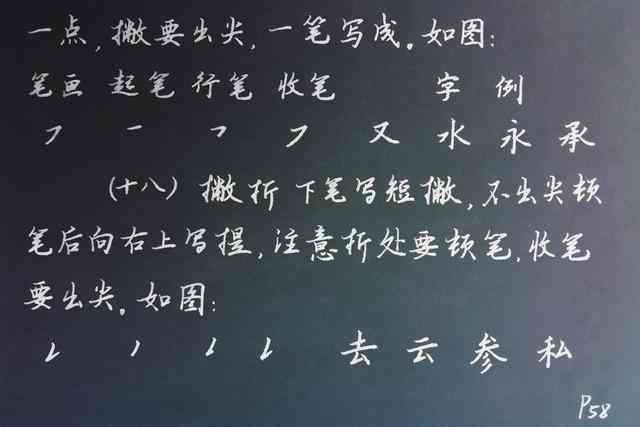 一点,撇要出尖,一笔写成。如图:
笔画 起笔 行笔 收笔 字 例
㇇ ㇐ ㇇ ㇇ 又 水 永 承
(十八) 撇折 下笔写短撇,不出尖顿
笔后向右上写提,注意折处要顿笔,收笔
要出尖。如图:
去 云 参 私
P58